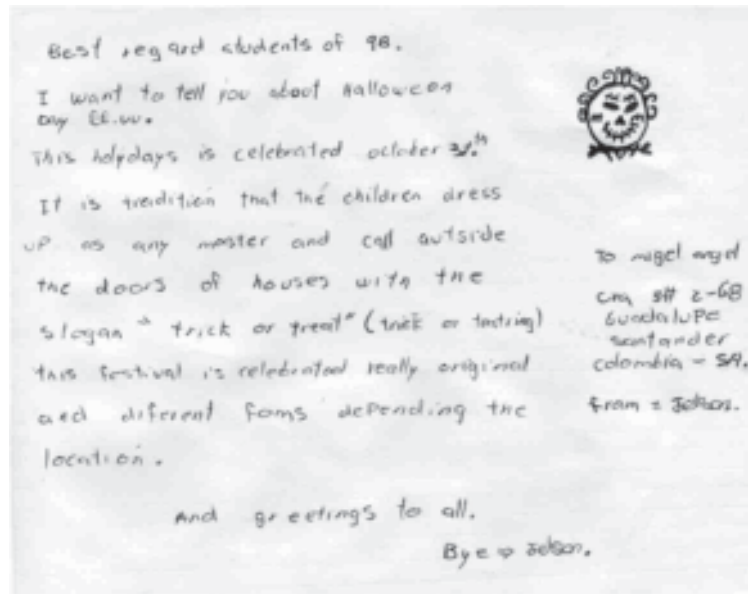 Best regard students of 9B.
I want to tell you about Halloween
any EE.UU.
This holydays is celebrated october 31.th
It is tradition that the children dress
UP as any moster and call outside
the doors of houses with the
slogan "trick or treat" (trick or tastring)
this festival is celebrated really original
and diferent foms depending the
location.
And greetings to all.
Bye Jeison.
To migel angel
cra 2-68
Guadalupe
santander
colombia - SA.
from = Jeison.